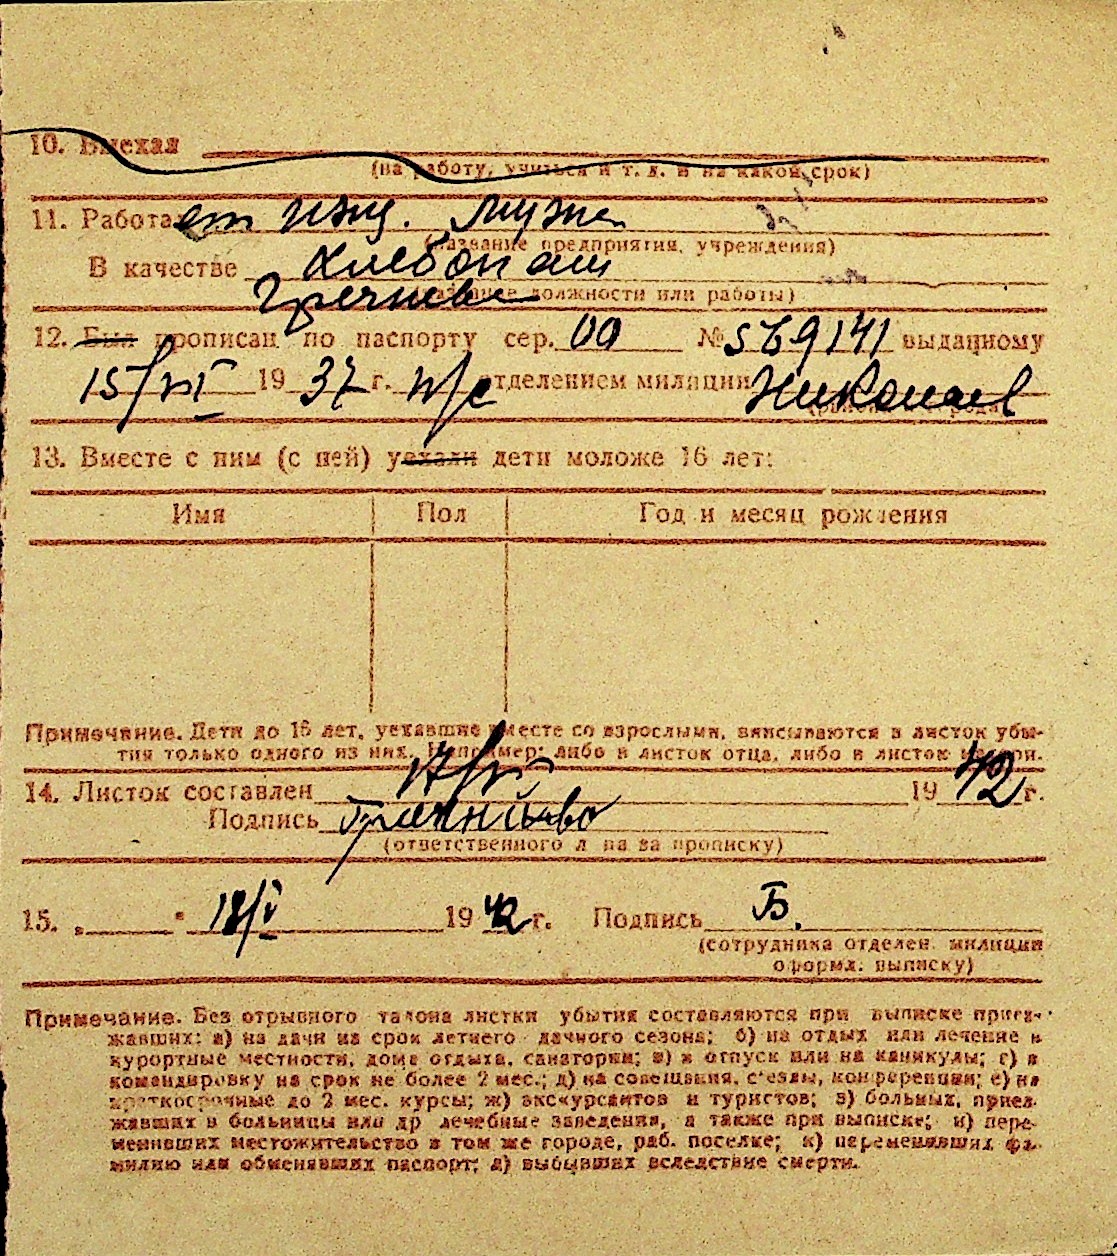 10. Выехал
(на работу, учиться и т. д. и на какой срок)
11. Работает ижд. мужа
(название предприятия, учреждения)
В качестве Хлебопаш
(название должности или работы)
12. Был прописан по паспорту сер. 00 № 569141 выданному
15/VI 1937 г. н/с отделением милиции Николаев
13. Вместе с ним (с ней) уехали дети моложе 16 лет:
Имя Пол Год и месяц рождения
Примечание. Дети до 16 лет, уехавшие вместе со взрослыми, вписываются в листок убы-
тия только одного из них. Например: либо в листок отца, либо в листок матери.
14. Листок составлен 17/VI 1942 г.
Подпись
(ответственного лица за прописку)
15. „ " 18/V 1942 г. Подпись Б.
(сотрудника отделен. милиции
оформл. выписку)
Примечание. Без отрывного талона листки убытия составляются при выписке приез-
жавших: а) на дачи на срок летнего дачного сезона; б) на отдых или лечение в
курортные местности, дома отдыха, санатории; в) в отпуск или на каникулы; г) в
командировку на срок не более 2 мес.; д) на совещания, съезды, конференции; е) на
краткосрочные до 2 мес. курсы; ж) экскурсантов и туристов; з) больных, приез-
жавших в больницы или др лечебные заведения, а также при выписке; и) пере-
менивших местожительство в том же городе, раб. поселке; к) переменявших фа-
милию или обменявших паспорт; л) выбывших вследствие смерти.